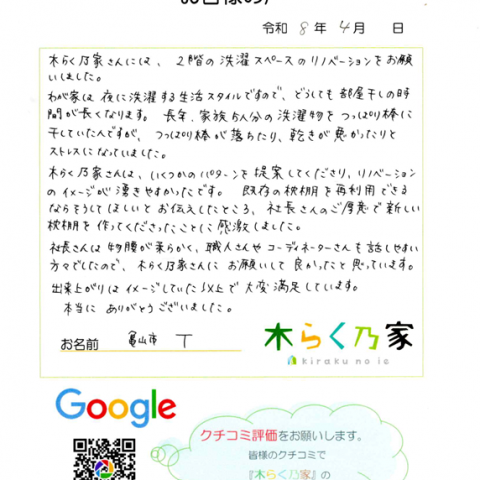 令和 8 年 4 月 日
木らく乃家さんには、2階の洗濯スペースのリノベーションをお願
いしました。
わが家は夜に洗濯する生活スタイルですので、どうしても部屋干しの時
間が長くなります。長年、家族5人分の洗濯物をつっぱり棒に
干していたんですが、つっぱり棒が落ちたり、乾きが悪かったりと
ストレスになっていました。
木らく乃家さんは、いくつかのパターンを提案してくださり、リノベーション
のイメージが湧きやすかったです。既存の枕棚を再利用できる
ならそうしてほしいとお伝えしたところ、社長さんのご厚意で新しい
枕棚を作ってくださったことに感激しました。
社長さんは物腰が柔らかく、職人さんやコーディネーターさんも話しやすい
方々でしたので、木らく乃家さんにお願いして良かったと思っています。
出来上がりはイメージしていた以上で大変満足しています。
本当にありがとうございました。
お名前 亀山市 T
木らく乃家
kiraku no ie
Google
クチコミ評価をお願いします。
皆様のクチコミで
『木らく乃家』の